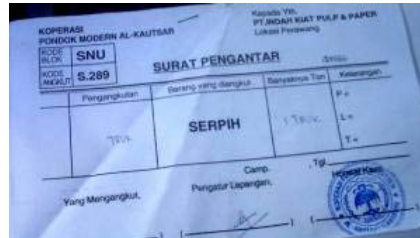 KOPERASI
PONDOK MODERN AL-KAUTSAR
Kepada Yth,
PT.INDAH KIAT PULP & PAPER
Lokasi Perawang
KODE BLOK SNU
KODE ANGKUT S.289
SURAT PENGANTAR
Pengangkutan Barang yang diangkut Banyaknya Ton Keterangan
TRUK SERPIH 1 TRUK P =
L =
T =
Camp. , Tgl.
Yang Mengangkut, Pengatur Lapangan, Hormat Kami